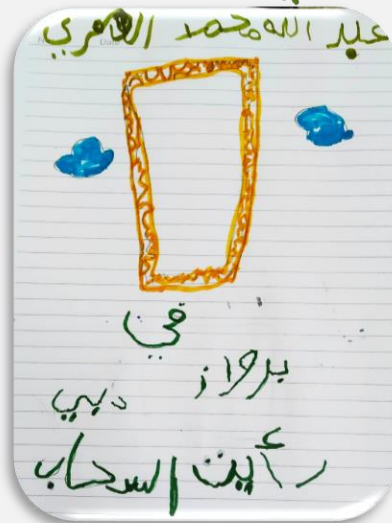 عبد الله محمد العامري
في
برواز
دبي
رأيت السحاب